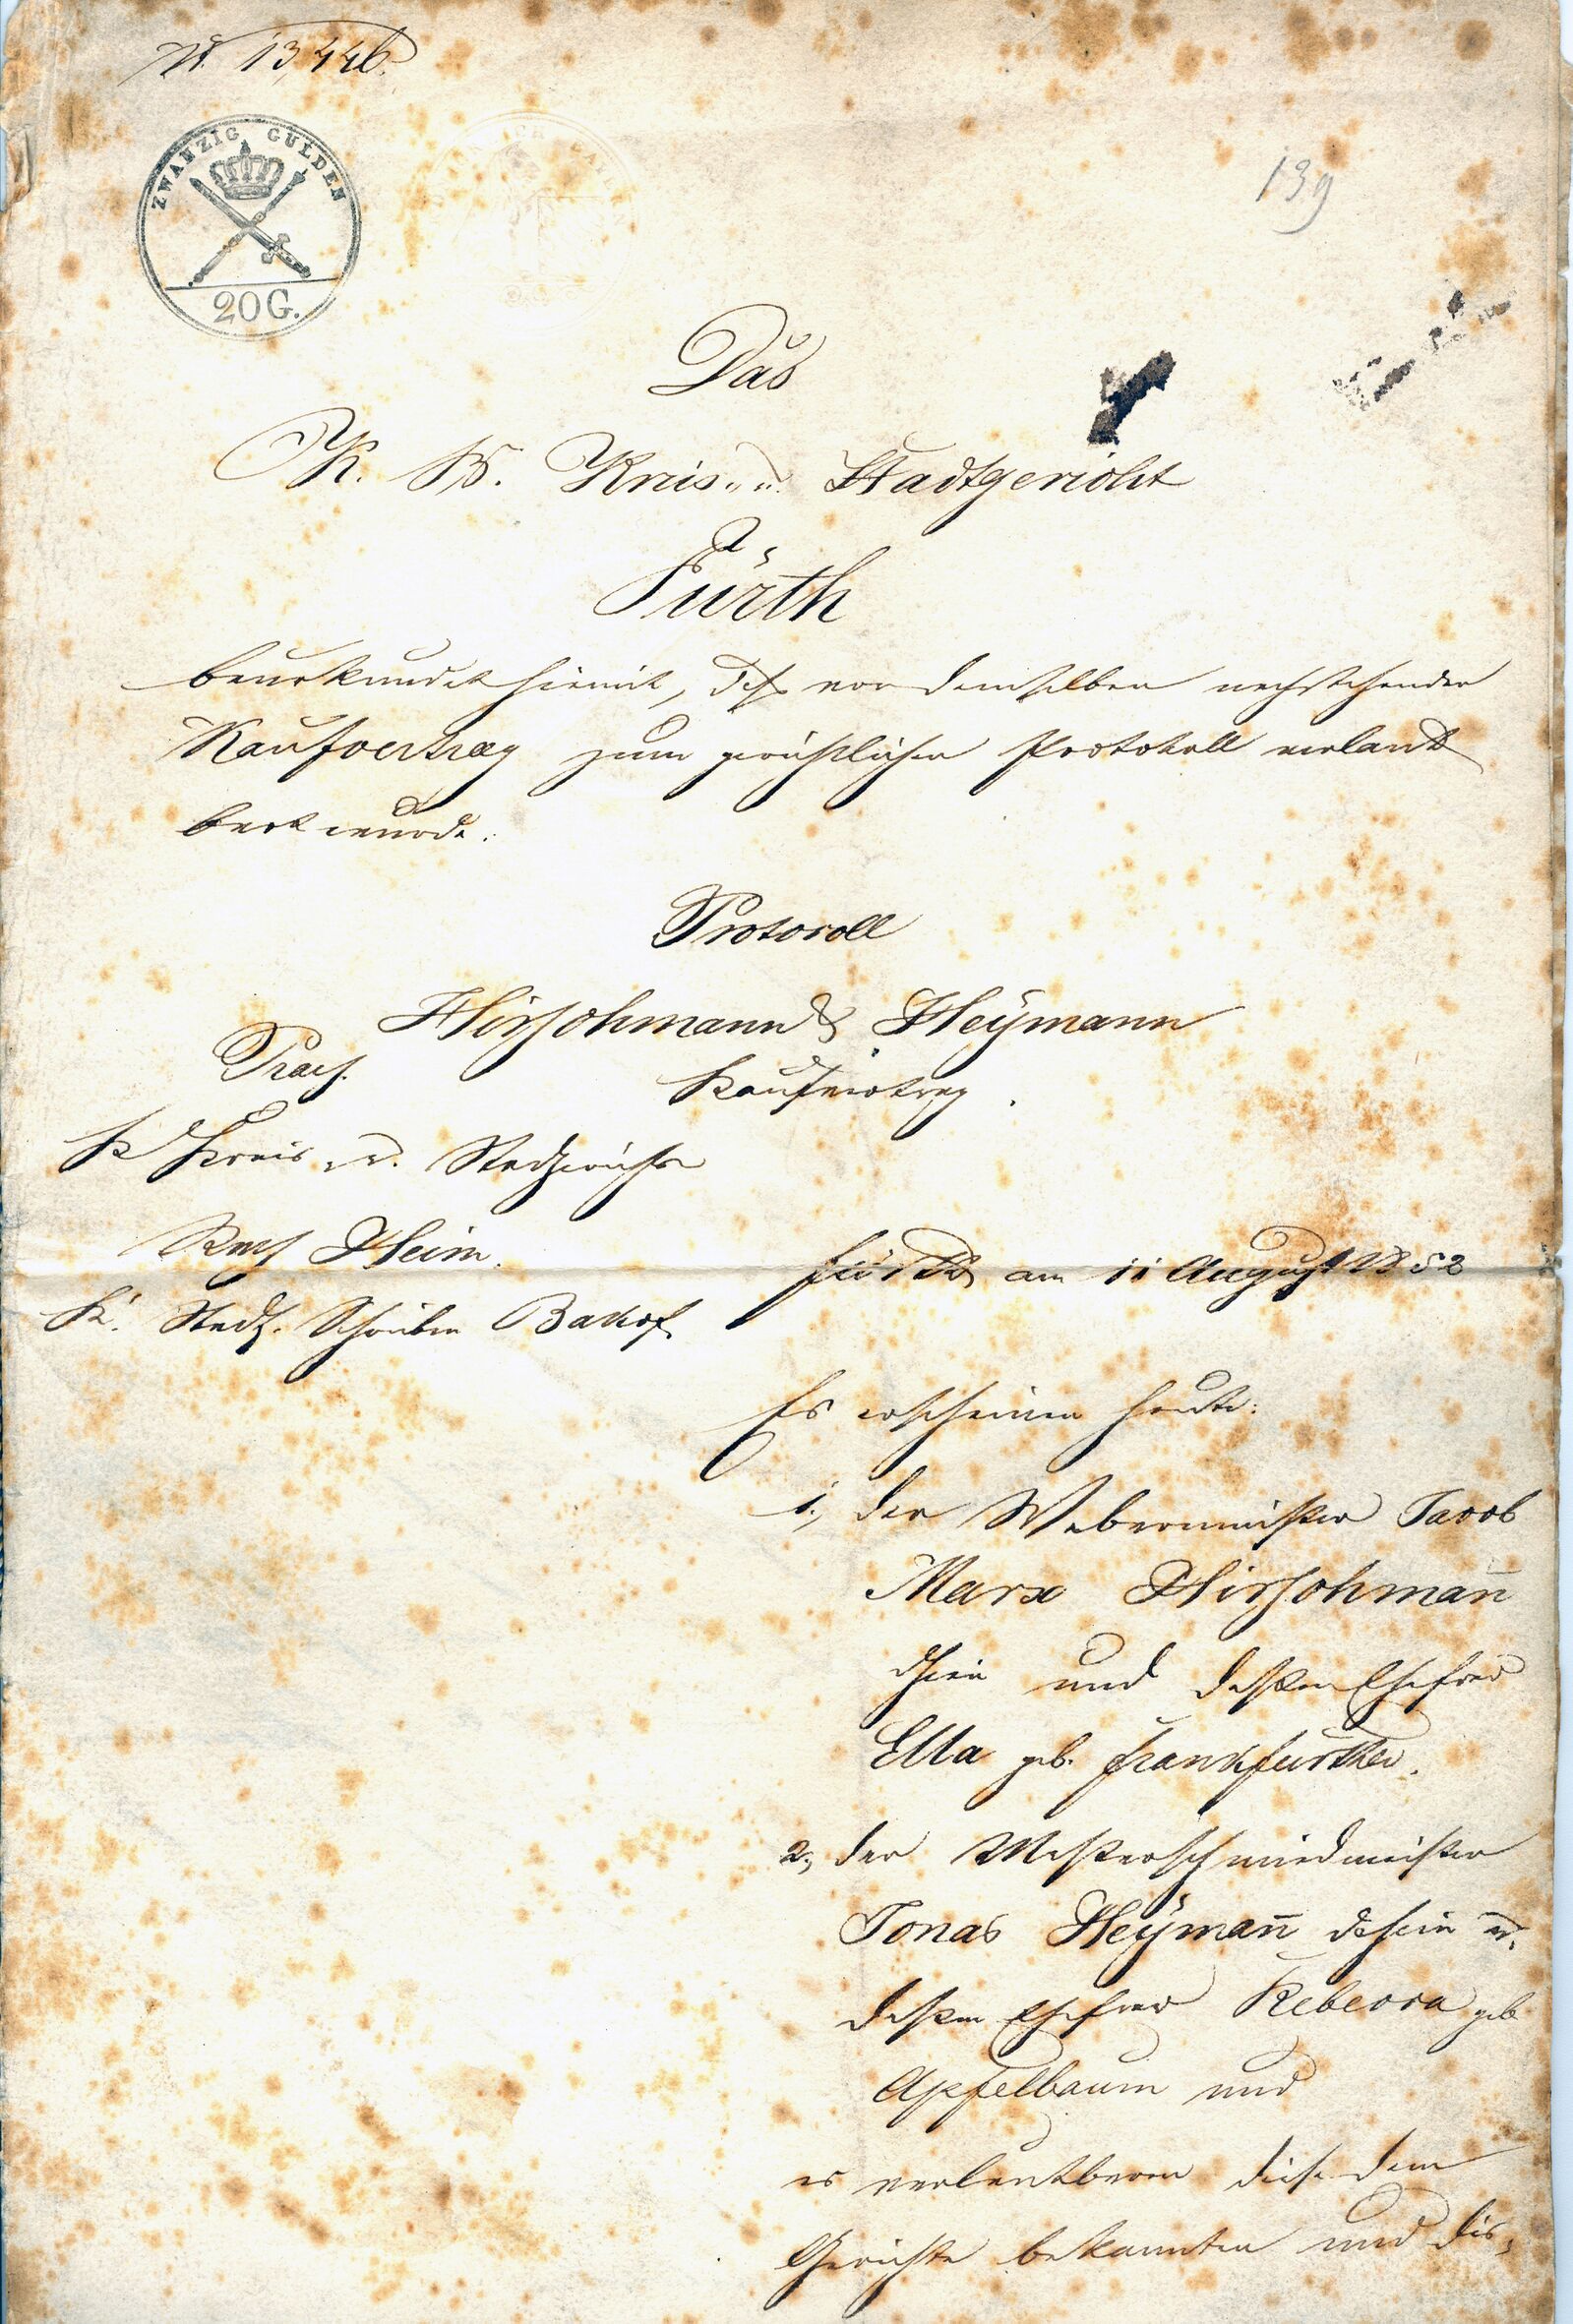 N. 13446.
ZWANZIG GULDEN
20 G.
139
Das
K. B. Kreis- u. Stadtgericht
Fürth
beurkundet hiemit, daß vor demselben nachstehender
Kaufvertrag zum gerichtlichen Protokoll verlaut
bart wurde:
Protocoll
Hirschmann & Heÿmann
Praes.
Kaufvertrag.
K Kreis u. Stadtgerichts
Heim.
K. Stadtg. Schreiber
Fürth am 11 August 1852
Es erscheinen heute:
1., der Webermeister Jacob
Marx Hirschmañ
und deßen Ehefrau
Ella geb. Frankfurther.
2., der Messerschmiedmeister
Jonas Heÿmañ dahier u.
deßen Ehefrau Rebecca geb
Apfelbaum und
es verlautbaren diese dem
Gerichte bekannten und dis-